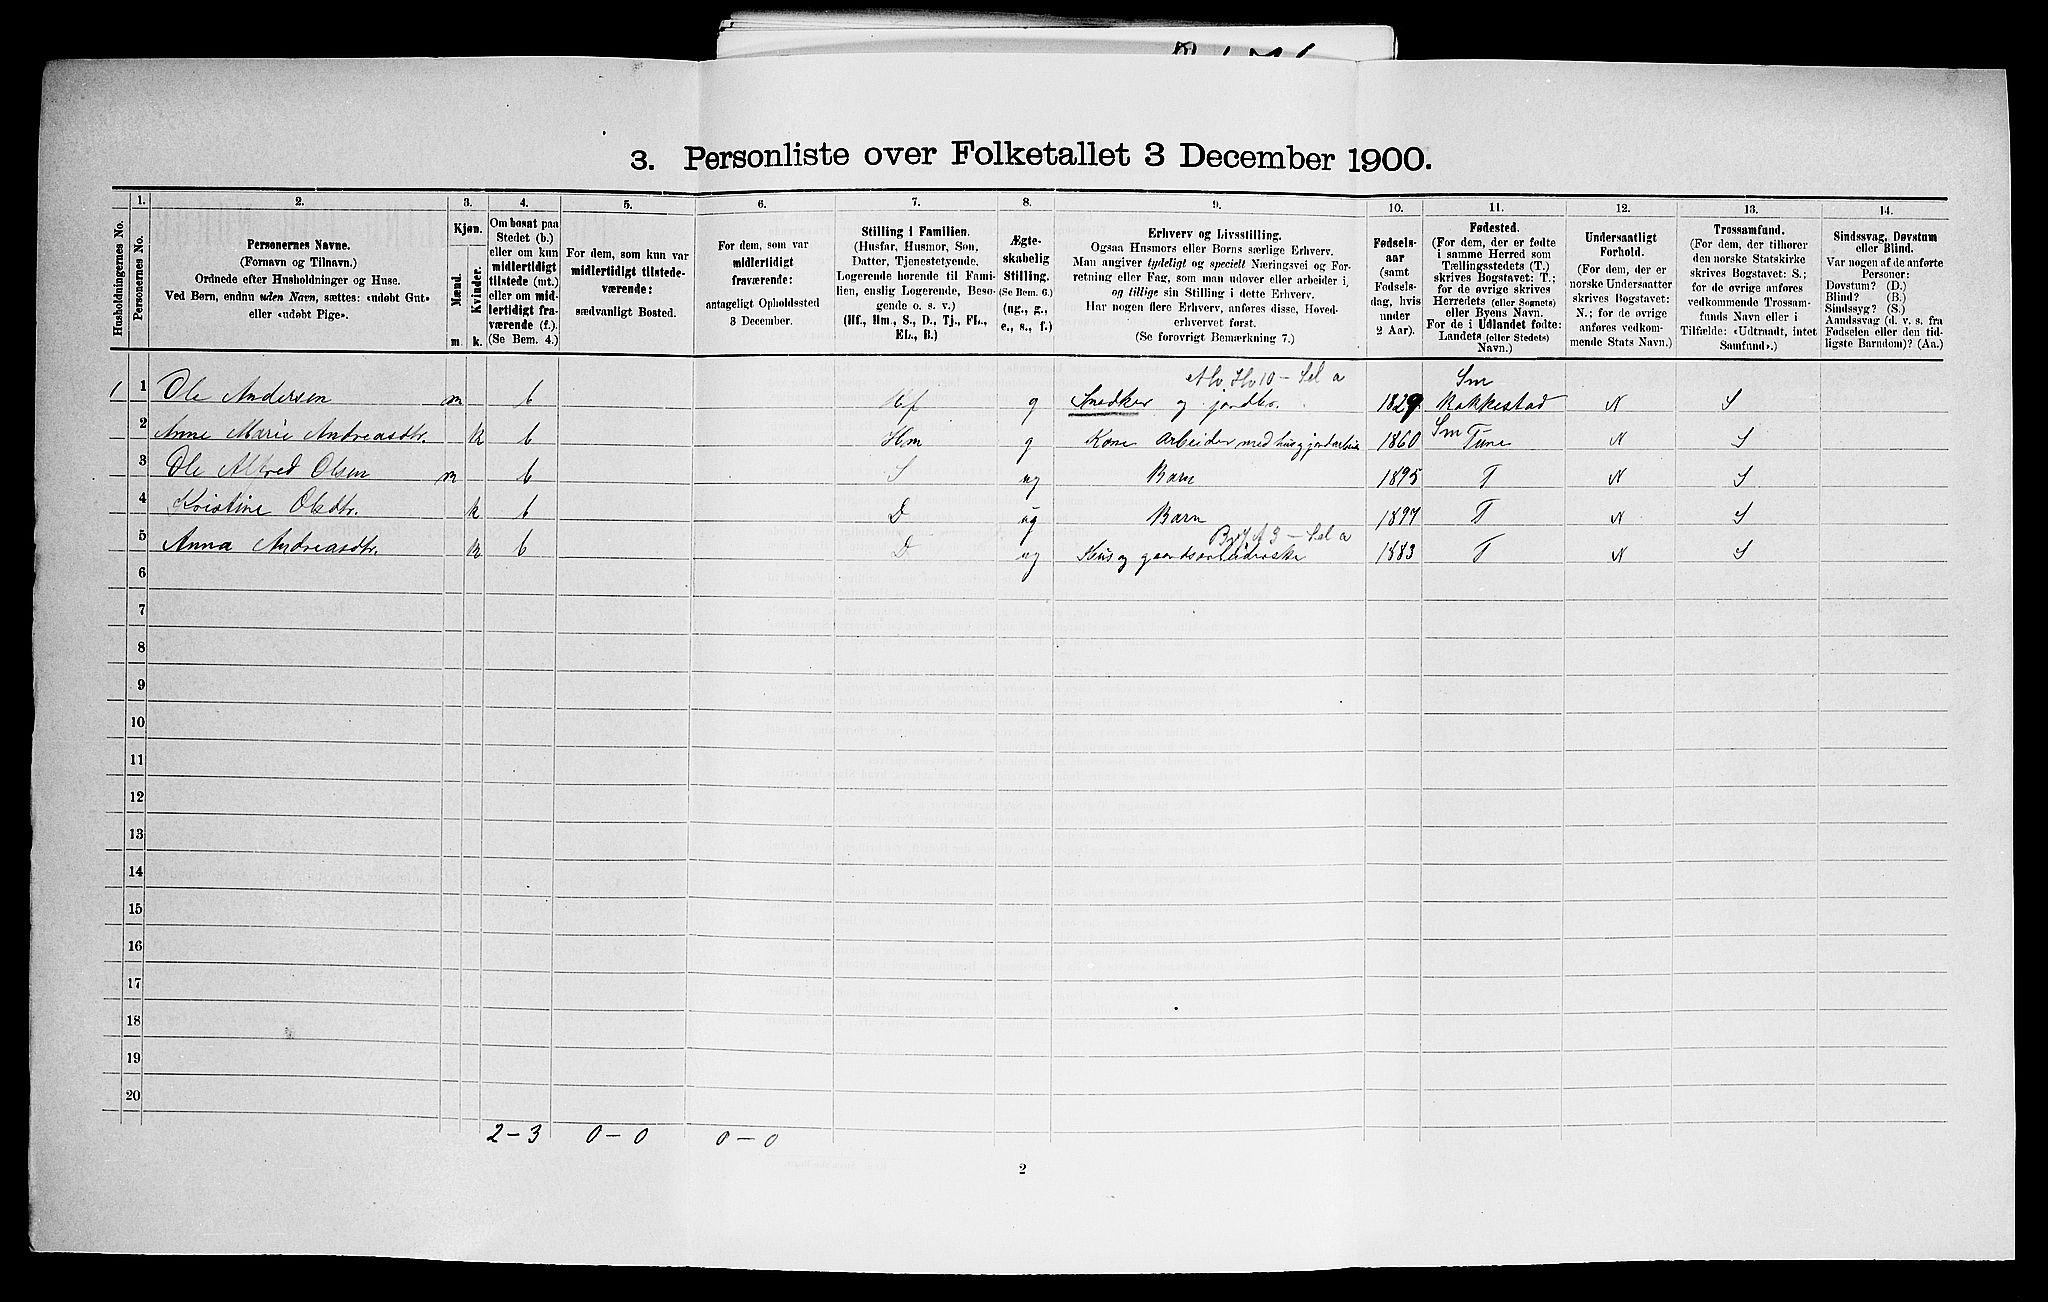 3. Personliste over Folketallet 3 December 1900.
Husholdningernes No.
1.
Personernes No.
2.
Personernes Navne.
(Fornavn og Tilnavn.)
Ordnede efter Husholdninger og Huse.
Ved Børn, endnu uden Navn, sættes: «udøbt Gut»
eller «udøbt Pige».
3.
Kjøn.
Mænd.
Kvinder.
m.
k.
4.
Om bosat paa
Stedet (b.)
eller om kun
midlertidigt
tilstede (mt.)
eller om mid-
lertidigt fra-
værende (f.).
(Se Bem. 4.)
5.
For dem, som kun var
midlertidigt tilstede-
værende:
sædvanligt Bosted.
6.
For dem, som var
midlertidigt
fraværende:
antageligt Opholdssted
3 December.
7.
Stilling i Familien.
(Husfar, Husmor, Søn,
Datter, Tjenestetyende,
Logerende hørende til Fami-
lien, enslig Logerende, Beso-
gende o. s. v.)
(Hf., Hm., S., D., Tj., FL.,
EL., B.)
8.
Ægte-
skabelig
Stilling.
(Se Bem. 6.)
(ug., g.,
e., s., f.)
9.
Erhverv og Livsstilling.
Ogsaa Husmors eller Børns særlige Erhverv.
Man angiver tydeligt og specielt Næringsvei og For-
retning eller Fag, som man udøver eller arbeider i,
og tillige sin Stilling i dette Erhverv.
Har nogen flere Erhverv, anføres disse, Hoved-
erhvervet først.
(Se forøvrigt Bemærkning 7.)
10.
Fødsels-
aar
(samt
Fødsels-
dag, hvis
under
2 Aar).
11.
Fødested.
(For dem, der er fødte
i samme Herred som
Tællingsstedets (T.)
skrives Bogstavet: T.;
for de øvrige skrives
Herredets (eller Sognets)
eller Byens Navn.
For de i Udlandet fødte:
Landets (eller Stedets)
Navn.)
12.
Undersaatligt
Forhold.
(For dem, der er
norske Undersaatter
skrives Bogstavet:
N.; for de øvrige
anføres vedkom-
mende Stats Navn.)
13.
Trossamfund.
(For dem, der tilhører
den norske Statskirke
skrives Bogstavet: S.;
for de øvrige anføres
vedkommende Trossam-
funds Navn eller i
Tilfælde: «Udtraadt, intet
Samfund».)
14.
Sindssvag, Døvstum
eller Blind.
Var nogen af de anførte
Personer:
Døvstum? (D.)
Blind? (B.)
Sindssyg? (S.)
Aandssvag (d. v. s. fra
Fødselen eller den tid-
ligste Barndom)? (Aa.)
1 1 Ole Andersen m b Hf g Snedker og jordbr. 1829 Sm Rakkestad N S
2 Anne Marie Andreasdtr. k b Hm g Kone Arbeider med hus og jordarbeide 1860 Sm Tune N S
3 Ole Alfred Olsen m b S ug Barn 1895 T N S
4 Kristine Olsdtr. k b D ug Barn 1897 T N S
5 Anna Andreasdtr. k b D ug Hus og gaardsarbeiderske 1883 T N S
6
7
8
9
10
11
12
13
14
15
16
17
18
19
20
2 – 3 0 – 0 0 – 0
2